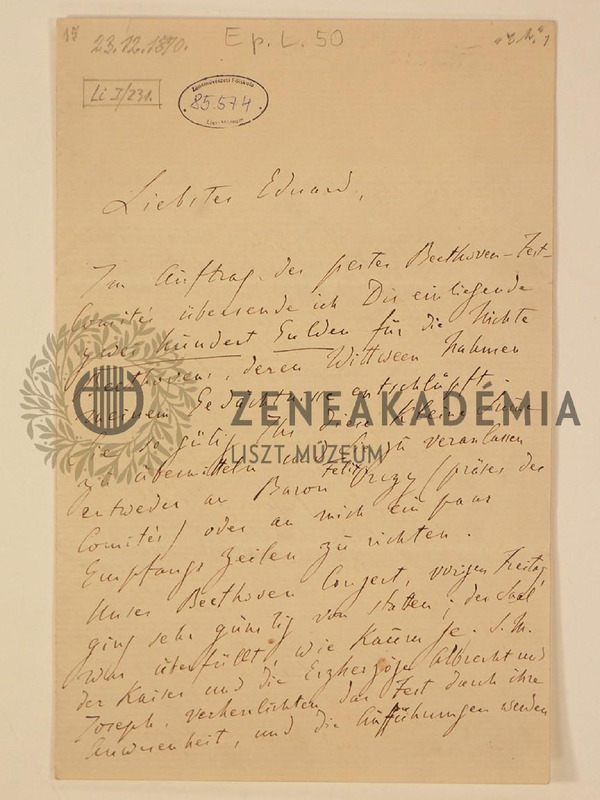 15
23.12.1870.
Ep. L. 50
Li I/231.
Zeneművészeti Főiskola
85.574
Liszt Múzeum
Liebster Eduard,
Im Auftrag des pester Beethoven-Fest-
Comités übersende ich Dir einliegende
hundert Gulden für die Nichte
Beethovens, deren Wittween Nahmen
meinem Gedächtnisse entschlüpft.
Sei so gütig Ihr diese kleine
zu übermitteln und Sie zu veranlassen
entweder an Baron Felix Orczy (präses des
Comités) oder an mich ein paar
Empfangs Zeilen zu richten.
Unser Beethoven Concert, vorigen Freitag,
ging sehr günstig von statten; der Saal
war überfüllt, wie kaum je. S. M.
der Kaiser und die Erzherzöge Albrecht und
Joseph, verherrlichten das Fest durch ihre
Anwesenheit, und die Aufführungen werden
ZENEAKADÉMIA
LISZT MÚZEUM